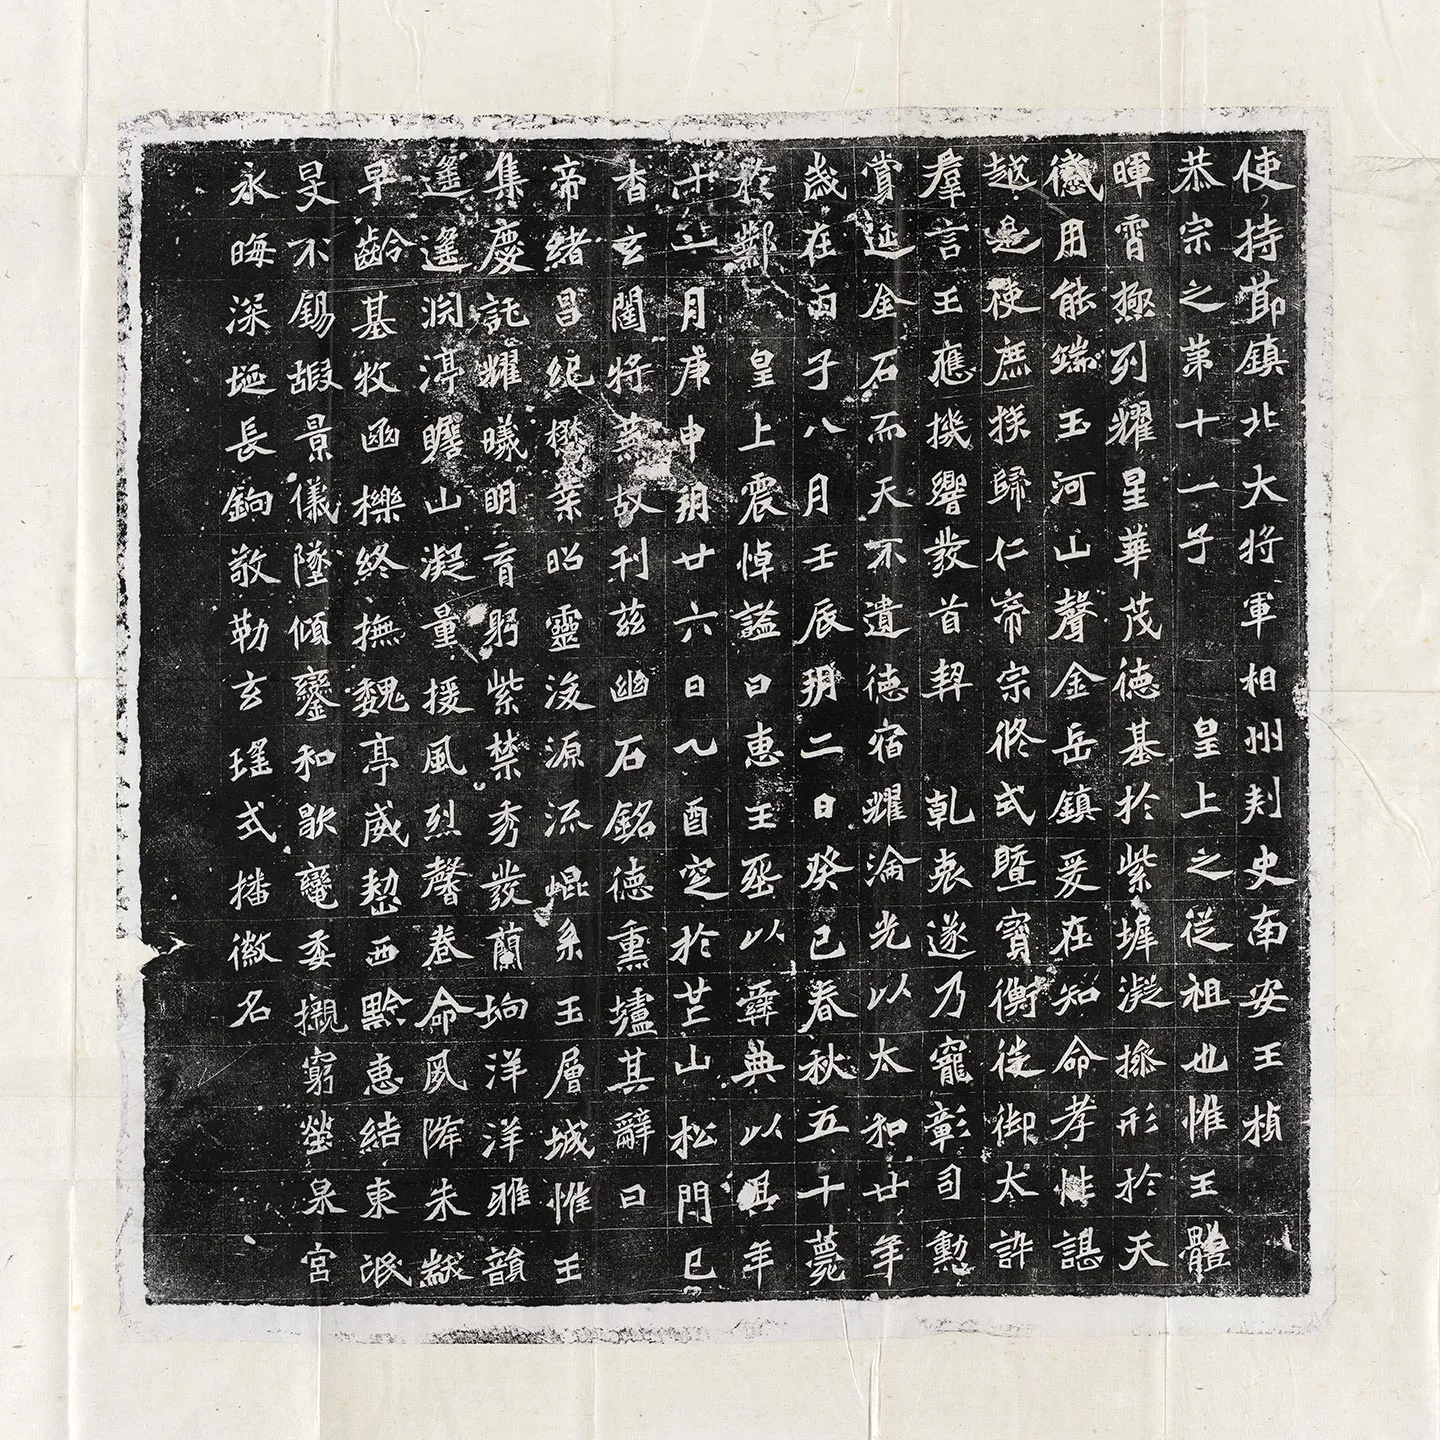 使持節鎮北大將軍相州刺史南安王楨
恭宗之第十一子皇上之從祖也惟王體
暉霄極列耀星華茂德基於紫墀凝操形於天
感用能端玉河山聲金岳鎮爰在知命孝性諶
越是使庶族歸仁帝宗攸式暨寶衡徙御大訏
羣言王應機響發首契乾衷遂乃寵彰司勳
賞延金石而天不遺德宿耀淪光以太和廿年
歲在丙子八月壬辰朔二日癸巳春秋五十薨
於鄴皇上震悼謚曰惠王葬以彝典以其年
十一月庚申朔廿六日乙酉窆於芒山松門已
杳玄闥將蕪故刊茲幽石銘德熏壚其辭曰
帝緒昌紀懋業昭靈浚源流崐系玉層城惟王
集慶託耀曦明育躬紫禁秀發蘭坰洋洋雅韻
遙遙淵渟瞻山凝量援風烈馨卷命夙降朱黻
早齡基牧函櫟終撫魏亭威愬西黔惠結東氓
旻不錫嘏景儀墜傾鑾和歇轊委櫬窮塋泉宮
永晦深埏長鉤敬勒玄瑤式播徽名